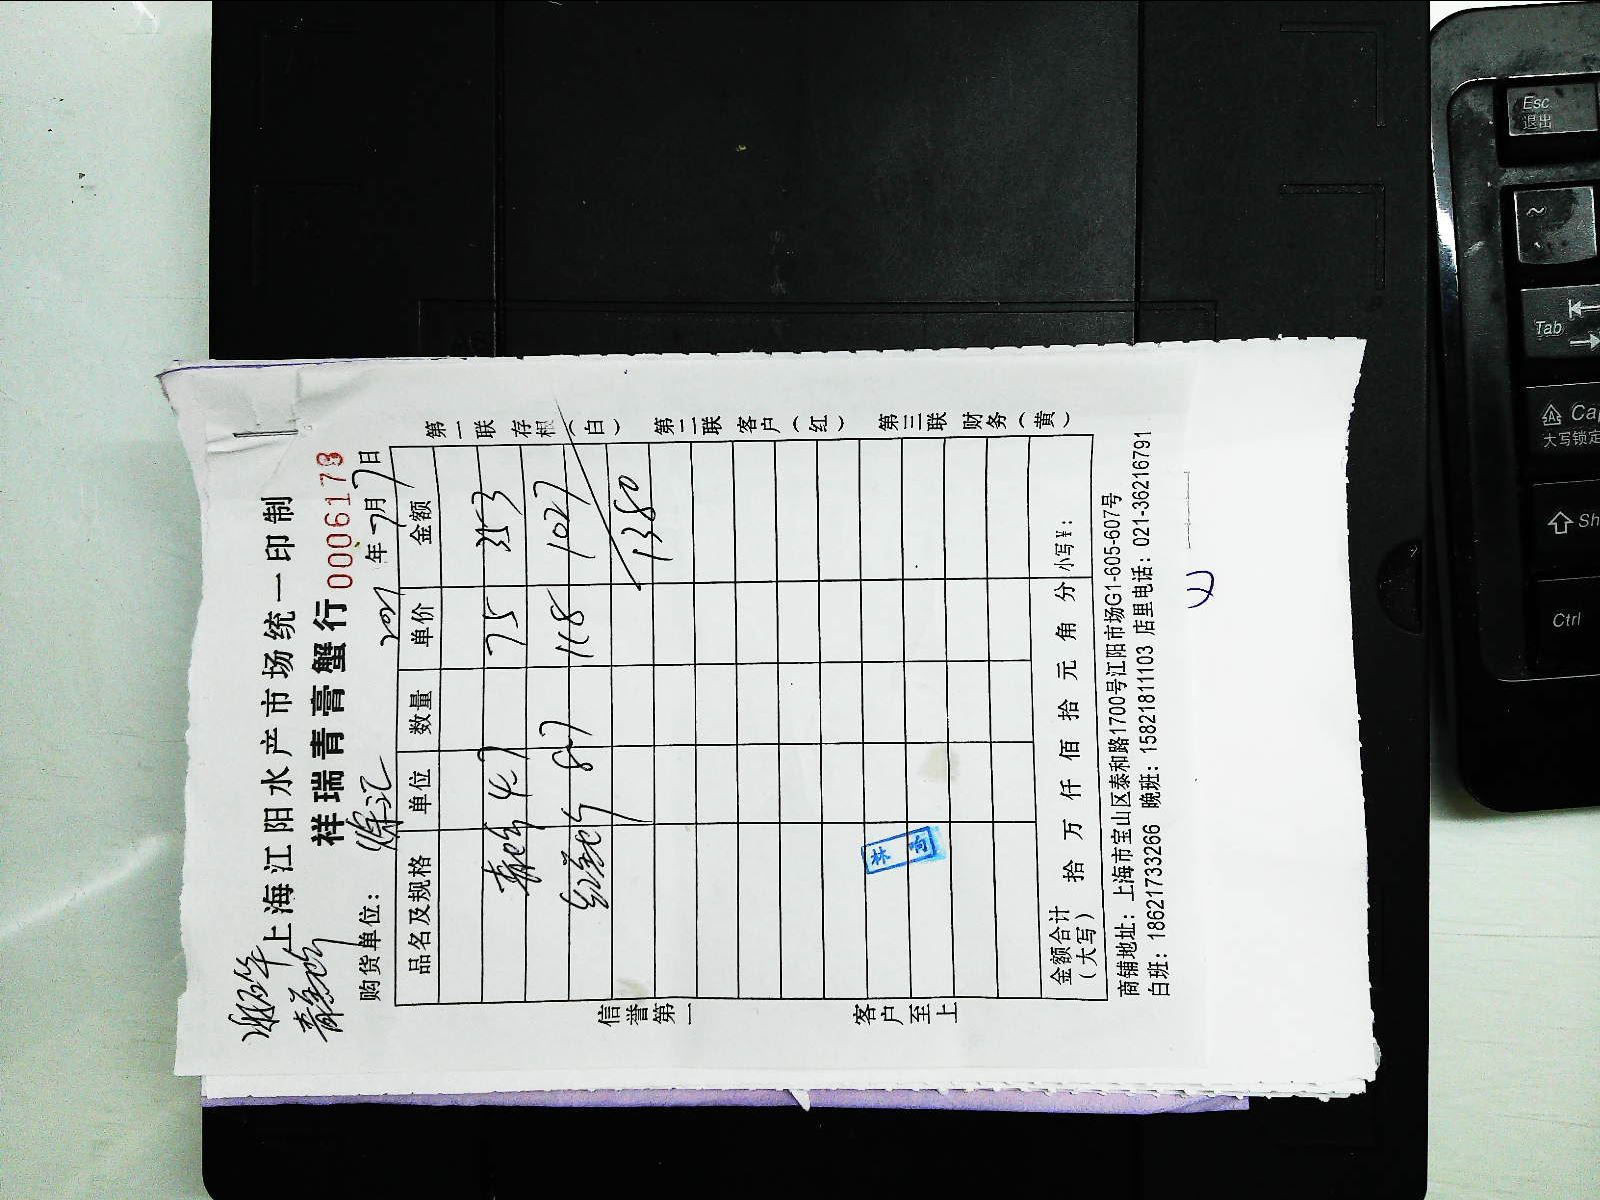 上海江阳水产市场统一印制
祥瑞青膏蟹行
0006178
购货单位：徐汇
年7月7日
品名及规格 单位 数量 单价 金额
4.7 75 353
8.7 118 1027
1380
林
金额合计（大写） 拾 万 仟 佰 拾 元 角 分 小写¥：
商铺地址：上海市宝山区泰和路1700号江阳市场G1-605-607号
白班：18621733266 晚班：15821811103 店里电话：021-36216791
第一联 存根（白） 第二联 客户（红） 第三联 财务（黄）
信誉第一 客户至上
Esc
退出
~
Tab
Cap
大写锁定
Sh
Ctrl